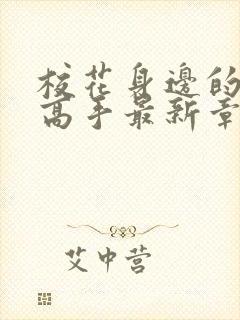 校花身邊的
高手最新章
艾中营